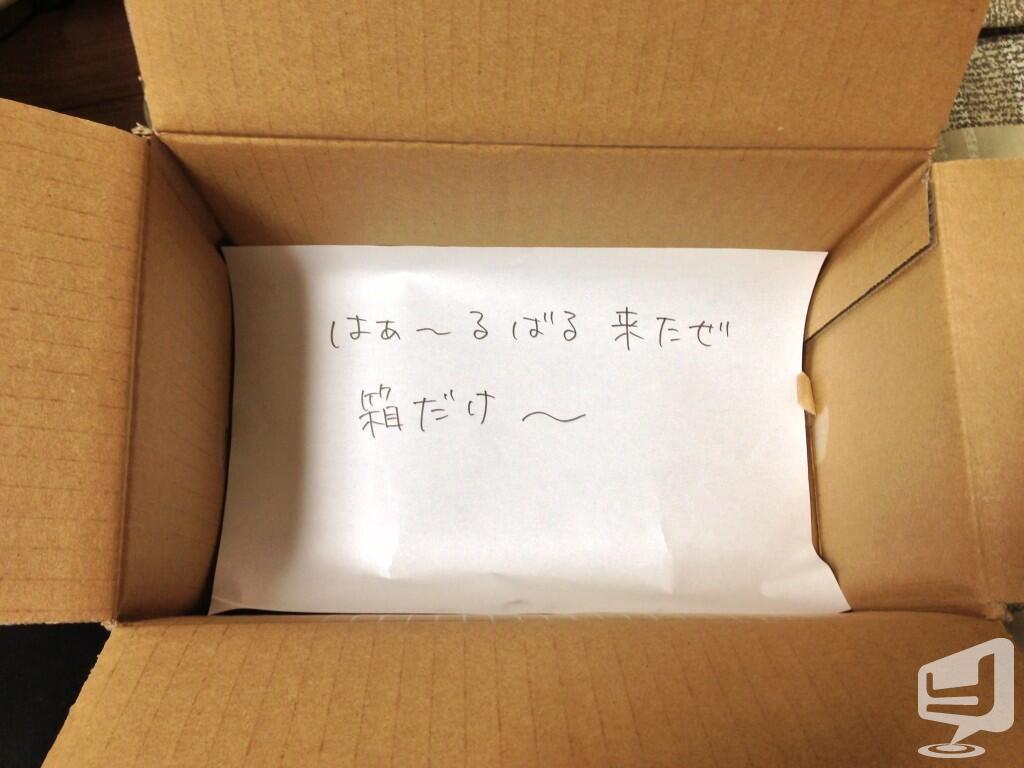 はぁ〜るばる 来たぜ
箱だけ 〜